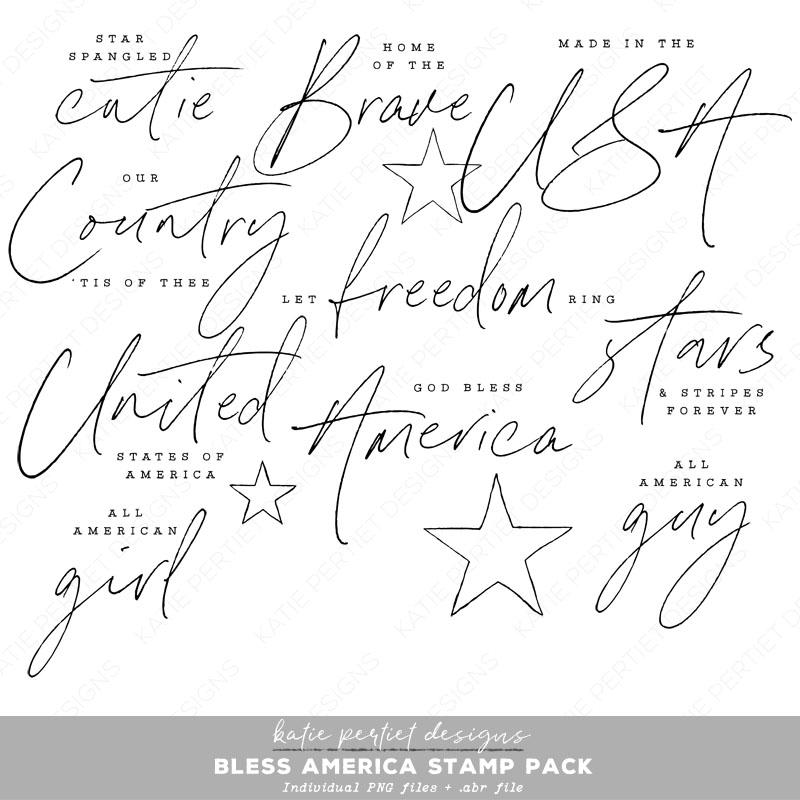 STAR
SPANGLED
cutie
HOME
OF THE
Brave
MADE IN THE
USA
OUR
Country
'TIS OF THEE
LET freedom RING
stars
& STRIPES
FOREVER
United
STATES OF
AMERICA
GOD BLESS
America
ALL
AMERICAN
girl
ALL
AMERICAN
guy
katie pertiet designs
BLESS AMERICA STAMP PACK
Individual PNG files + .abr file
KATIE PERTIET DESIGNS